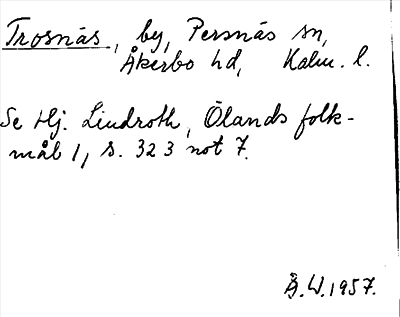 Trosnäs, by, Persnäs sn,
Åkerbo hd, Kalm. l.
Se Hj. Lindroth, Ölands folk-
mål 1, s. 323 not 7.
Å.W. 1957.